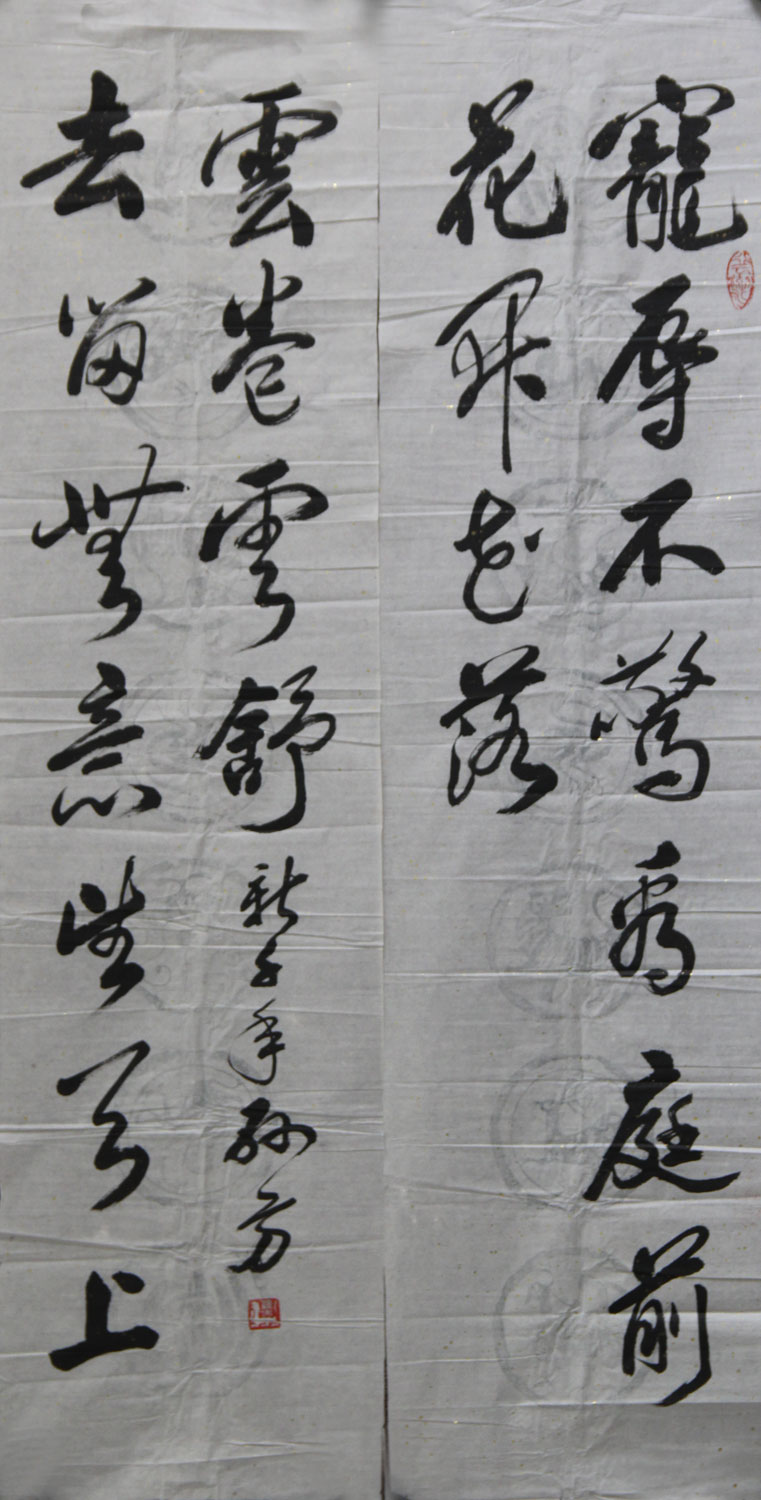 寵辱不驚看庭前
花開花落
去留無意望天上
雲卷雲舒 年孫